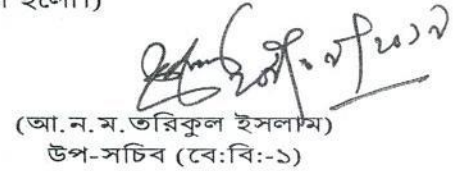 হলো।)
(আ.ন.ম.তরিকুল ইসলাম)
উপ-সচিব (বে:বি:-১)